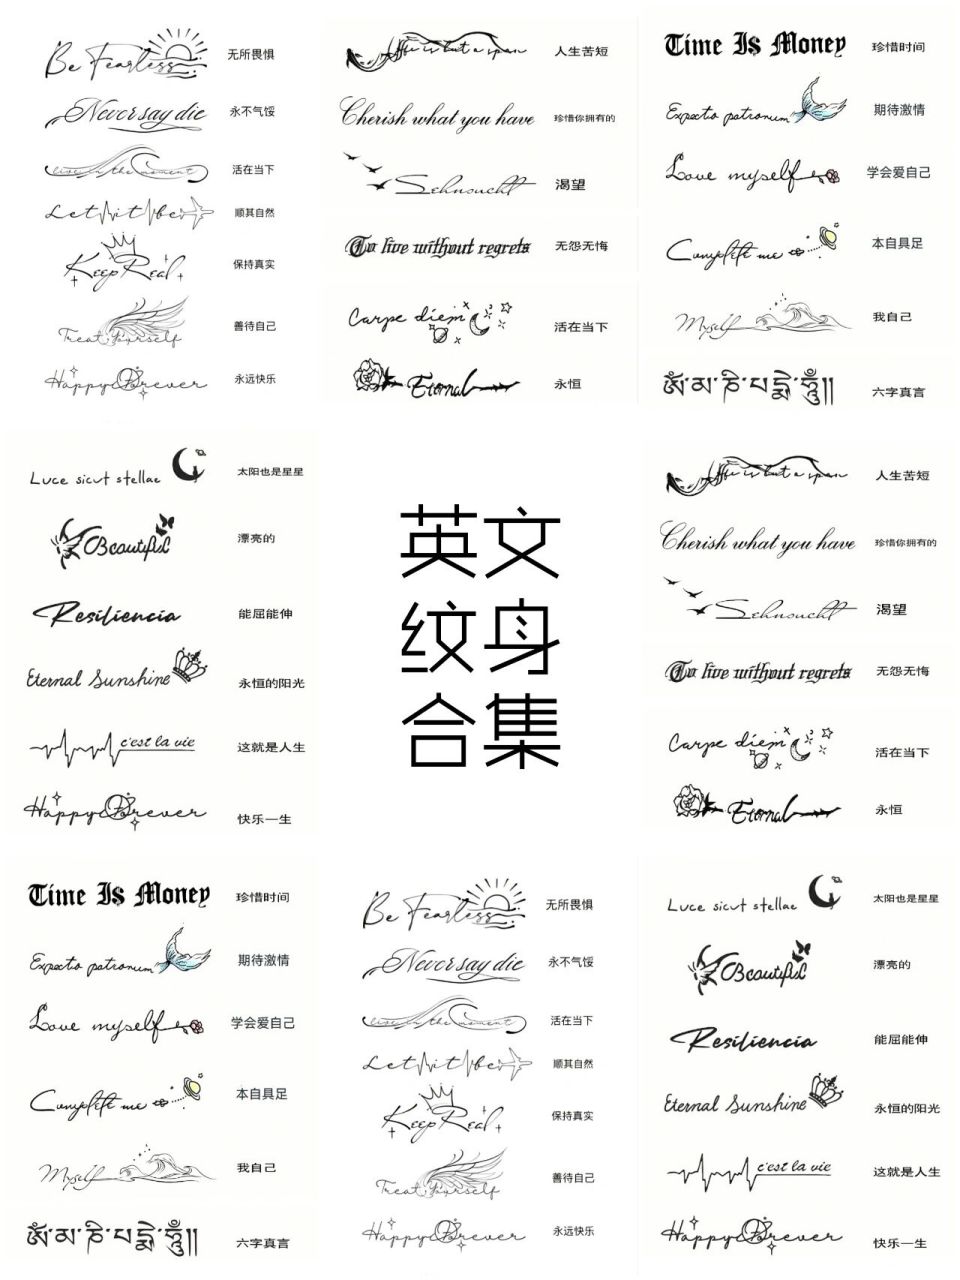 Be Fearless 无所畏惧
Never say die 永不气馁
live in the moment 活在当下
Let it be 顺其自然
Keep Real 保持真实
Treat Yourself 善待自己
Happy Forever 永远快乐
life is but a span 人生苦短
Cherish what you have 珍惜你拥有的
Sehnsucht 渴望
To live without regrets 无怨无悔
Carpe diem 活在当下
Eternal 永恒
Time Is Money 珍惜时间
Expecto patronum 期待激情
Love myself 学会爱自己
me 本自具足
Myself 我自己
ༀ་མ་ཎི་པདྨེ་ཧཱུྃ།། 六字真言
Luce sicut stellae 太阳也是星星
Beautiful 漂亮的
Resiliencia 能屈能伸
Eternal Sunshine 永恒的阳光
c'est la vie 这就是人生
Happy Forever 快乐一生
英文
纹身
合集
life is but a span 人生苦短
Cherish what you have 珍惜你拥有的
Sehnsucht 渴望
To live without regrets 无怨无悔
Carpe diem 活在当下
Eternal 永恒
Time Is Money 珍惜时间
Expecto patronum 期待激情
Love myself 学会爱自己
me 本自具足
Myself 我自己
ༀ་མ་ཎི་པདྨེ་ཧཱུྃ།། 六字真言
Be Fearless 无所畏惧
Never say die 永不气馁
live in the moment 活在当下
Let it be 顺其自然
Keep Real 保持真实
Treat Yourself 善待自己
Happy Forever 永远快乐
Luce sicut stellae 太阳也是星星
Beautiful 漂亮的
Resiliencia 能屈能伸
Eternal Sunshine 永恒的阳光
c'est la vie 这就是人生
Happy Forever 快乐一生